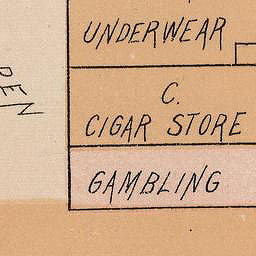 UNDERWEAR
C.
CIGAR STORE
GAMBLING
PEN